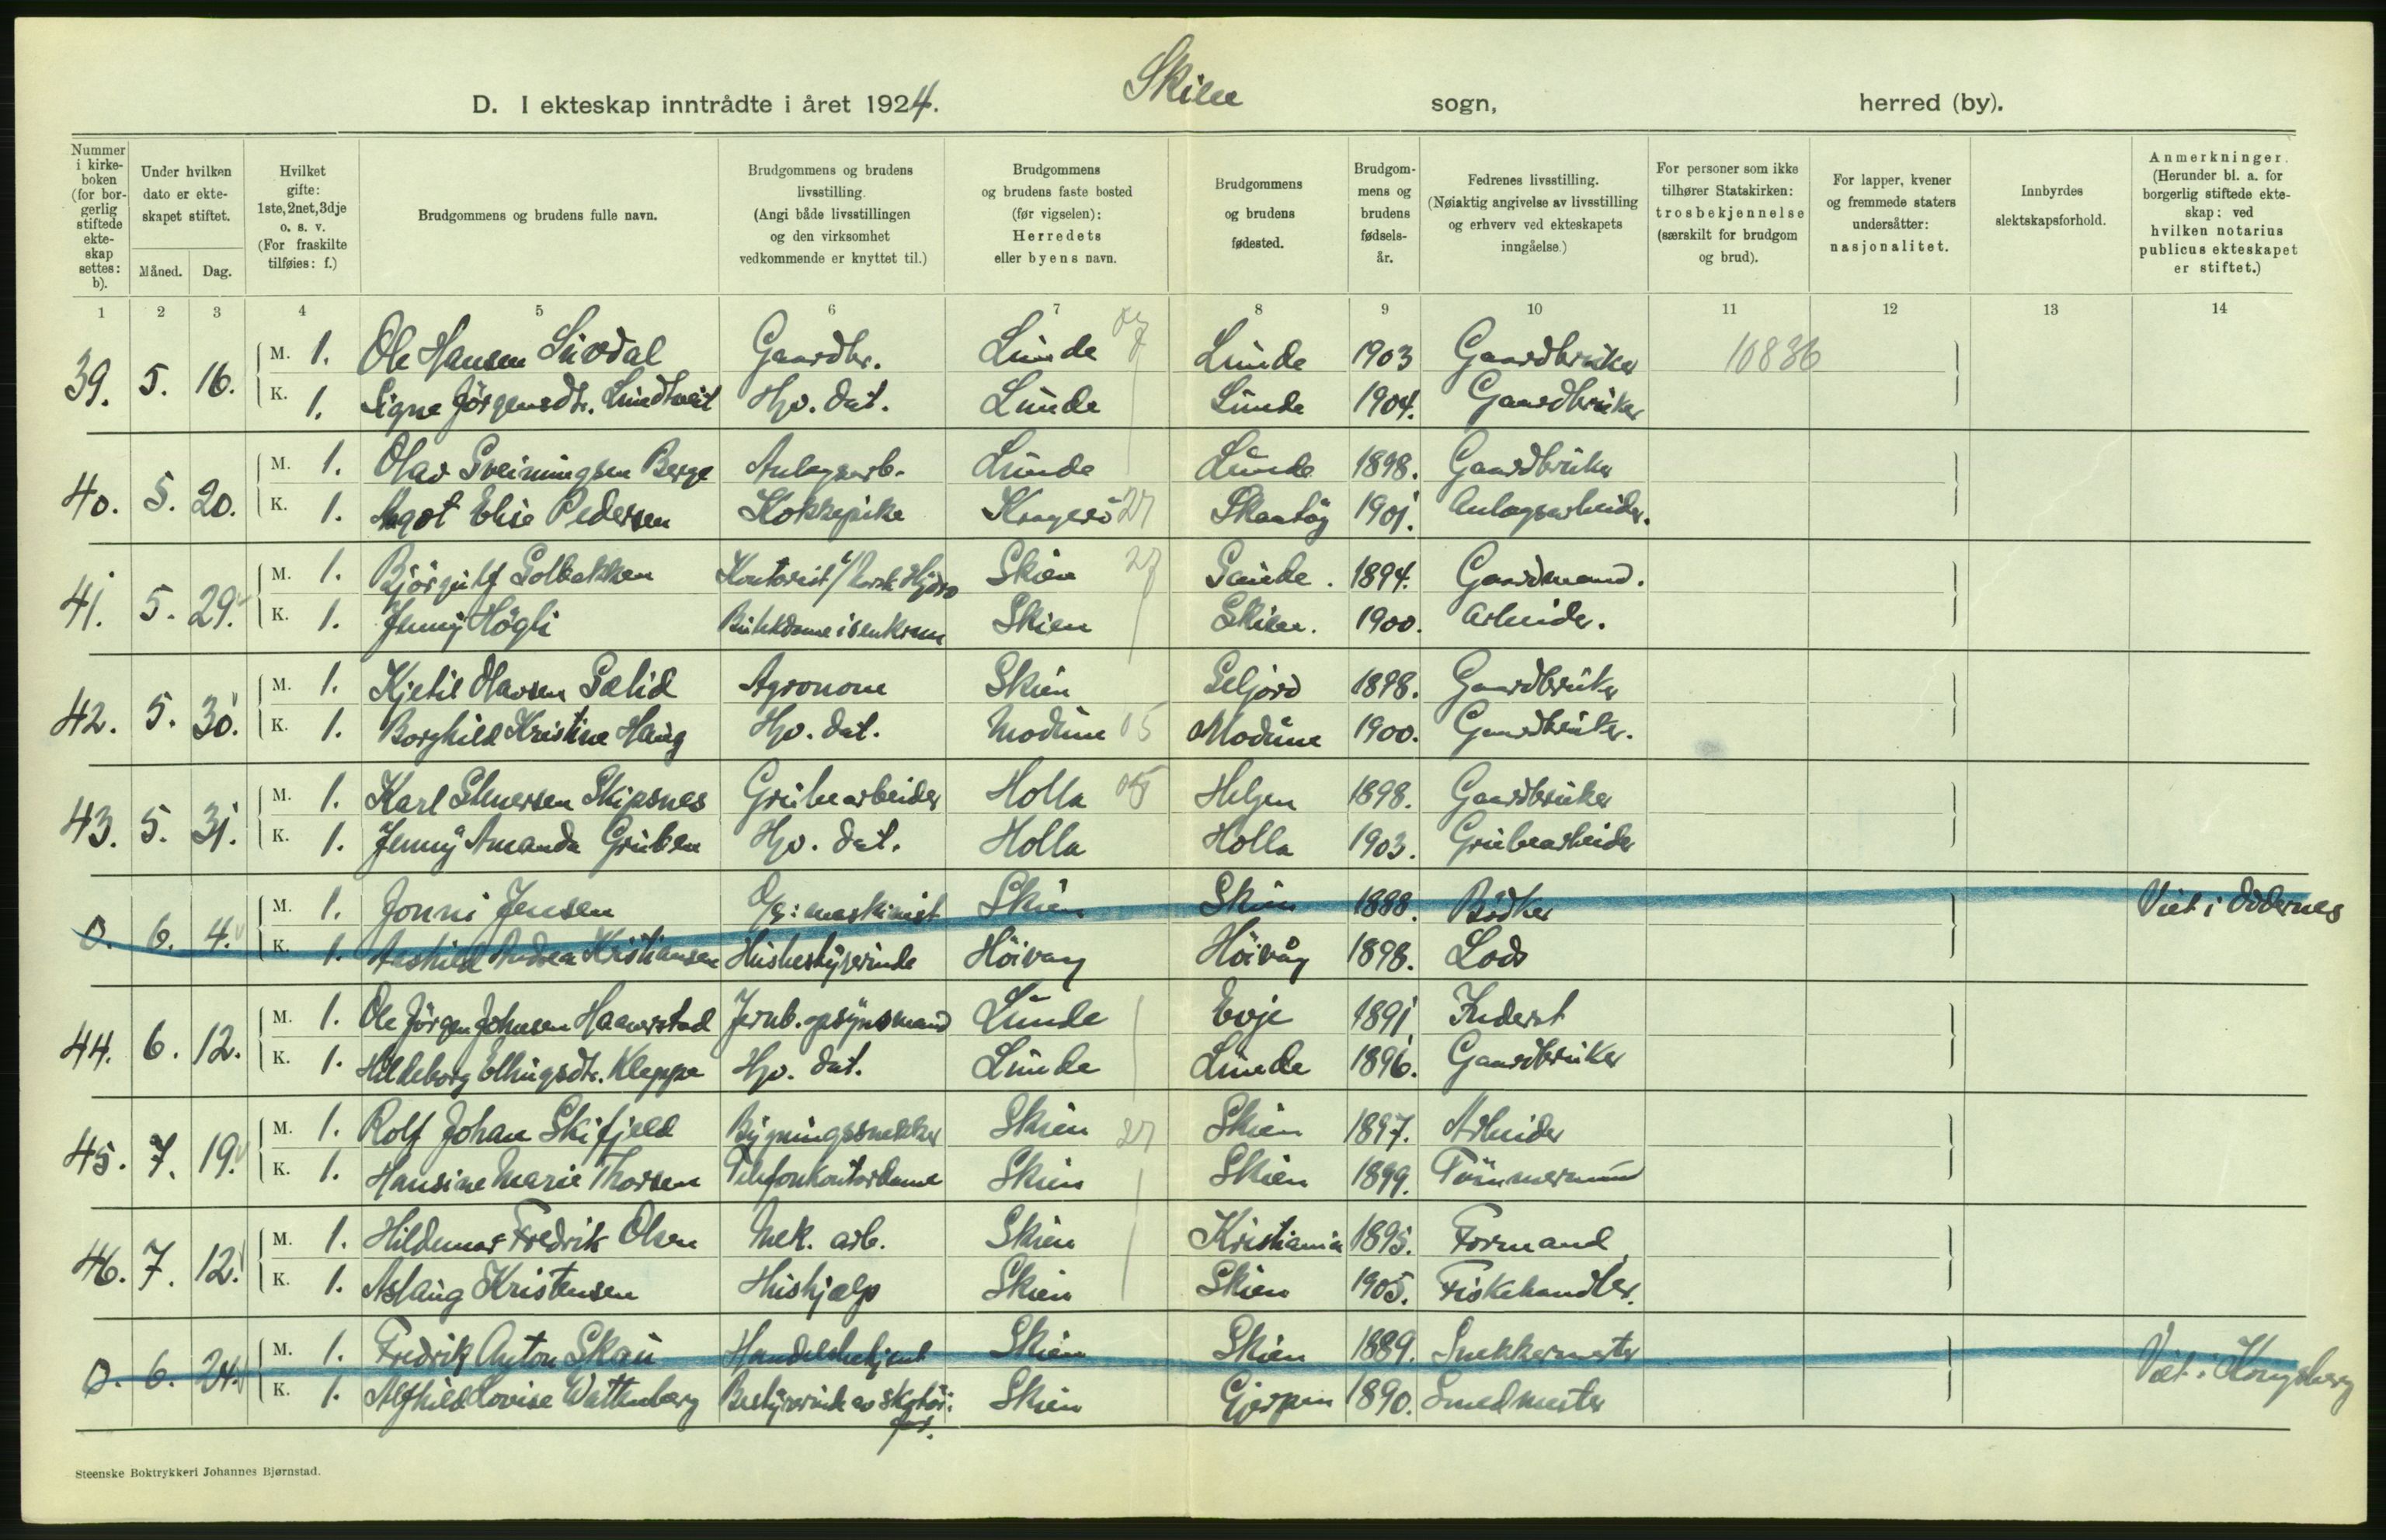 Skien
D. I ekteskap inntrådte i året 1924. sogn, herred (by).
Nummer i kirkeboken (for borgerlig stiftede ekteskap settes: b).
Under hvilken dato er ekteskapet stiftet.
Måned. Dag.
Hvilket gifte: 1ste, 2net, 3dje o. s. v. (For fraskilte tilføies: f.)
Brudgommens og brudens fulle navn.
Brudgommens og brudens livsstilling. (Angi både livsstillingen og den virksomhet vedkommende er knyttet til.)
Brudgommens og brudens faste bosted (før vigselen): Herredets eller byens navn.
Brudgommens og brudens fødested.
Brudgommens og brudens fødselsår.
Fedrenes livsstilling. (Nøiaktig angivelse av livsstilling og erhverv ved ekteskapets inngåelse.)
For personer som ikke tilhører Statskirken: trosbekjennelse (særskilt for brudgom og brud).
For lapper, kvener og fremmede staters undersåtter: nasjonalitet.
Innbyrdes slektskapsforhold.
Anmerkninger. (Herunder bl. a. for borgerlig stiftede ekteskap: ved hvilken notarius publicus ekteskapet er stiftet.)
1 2 3 4 5 6 7 8 9 10 11 12 13 14
39. 5. 16. M. 1. Ole Hansen Gaardbr. Lunde Lunde 1903 Gaardbruker 10836
K. 1. Signe Jörgensdtr. Lundtveit Hjv. dat. Lunde Lunde 1904. Gaardbruker
40. 5. 20. M. 1. Olav Sveinungsen Berge Anlagsarb. Lunde Lunde 1898. Gaardbruker
K. 1. Agot Elise Pedersen Kokkepike Kragerö 27 Skaatöy 1901. Anlagsarbeider.
41. 5. 29. M. 1. Björgulf Solbakken Kontorist v/ Norsk Hydro Skien 27 Sauide. 1894. Gaardmand.
K. 1. Jenny Högli Butikdame isenkram Skien Skien. 1900. Arbeider.
42. 5. 30. M. 1. Kjetil Olavsen Sælid Agronom Skien Seljord 1898. Gaardbruker
K. 1. Borghild Kristine Haug Hjv. dat. Modum 05 Modum 1900. Gaardbruker.
43. 5. 31. M. 1. Karl Skipsnes Grubearbeider Holla Helgen 1898. Gaardbruker
K. 1. Jenny Amanda Gruben Hjv. dat. Holla Holla 1903. Grubearbeider
0. 6. 4. M. 1. Jonni Jensen maskinist Skien Skien 1888. Bödker Viet i Oddernes
K. 1. Aashild Andrea Kristiansen Husbestyrerinde Höivaag Höivåg 1898. Lods
44. 6. 12. M. 1. Ole Jörgen Johnsen Haaverstad Jernb. opsynsmand Lunde Evje 1891 Inderst
K. 1. Hildeborg Ellingsdtr. Kleppe Hjv. dat. Lunde Lunde 1896. Gaardbruker
45. 7. 19. M. 1. Rolf Johan Skifjeld Bygningssnekker Skien 27 Skien 1897. Arbeider
K. 1. Hansine Marie Thorsen Telefonkontordame Skien Skien 1899. Tömmermand
46. 7. 12. M. 1. Hildemar Fredrik Olsen Mek. arb. Skien Kristiania 1895. Formand
K. 1. Aslaug Kristensen Hushjælp Skien Skien 1905. Fiskehandler.
0. 6. 24. M. 1. Fredrik Anton Skau Handelsbetjent Skien Skien 1889. Snekkermester Viet i Kongsberg
K. 1. Alfhild Lovise Wattenberg Bestyrerinde av skotöi: for. Skien Gjerpen 1890. Smedmester
Steenske Boktrykkeri Johannes Bjørnstad.